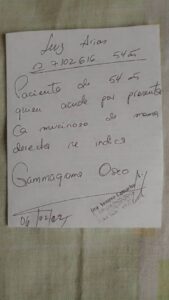 Luz Arias
7102616 54 a
Paciente de 54 a
quien acude por presentar
Ca mucinoso de mama
derecha se indica
Gammagama Oseo
06/02/02